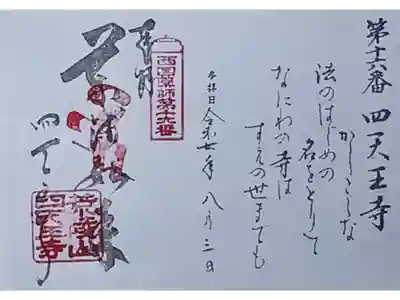 第十六番 四天王寺
かしこしな
法のはじめの
名をとりて
なにわの寺は
すえの世までも
参拝日 令和七年 八月三日
西国薬師第十六番
奉拝
四天王寺
荒陵山
四天王寺